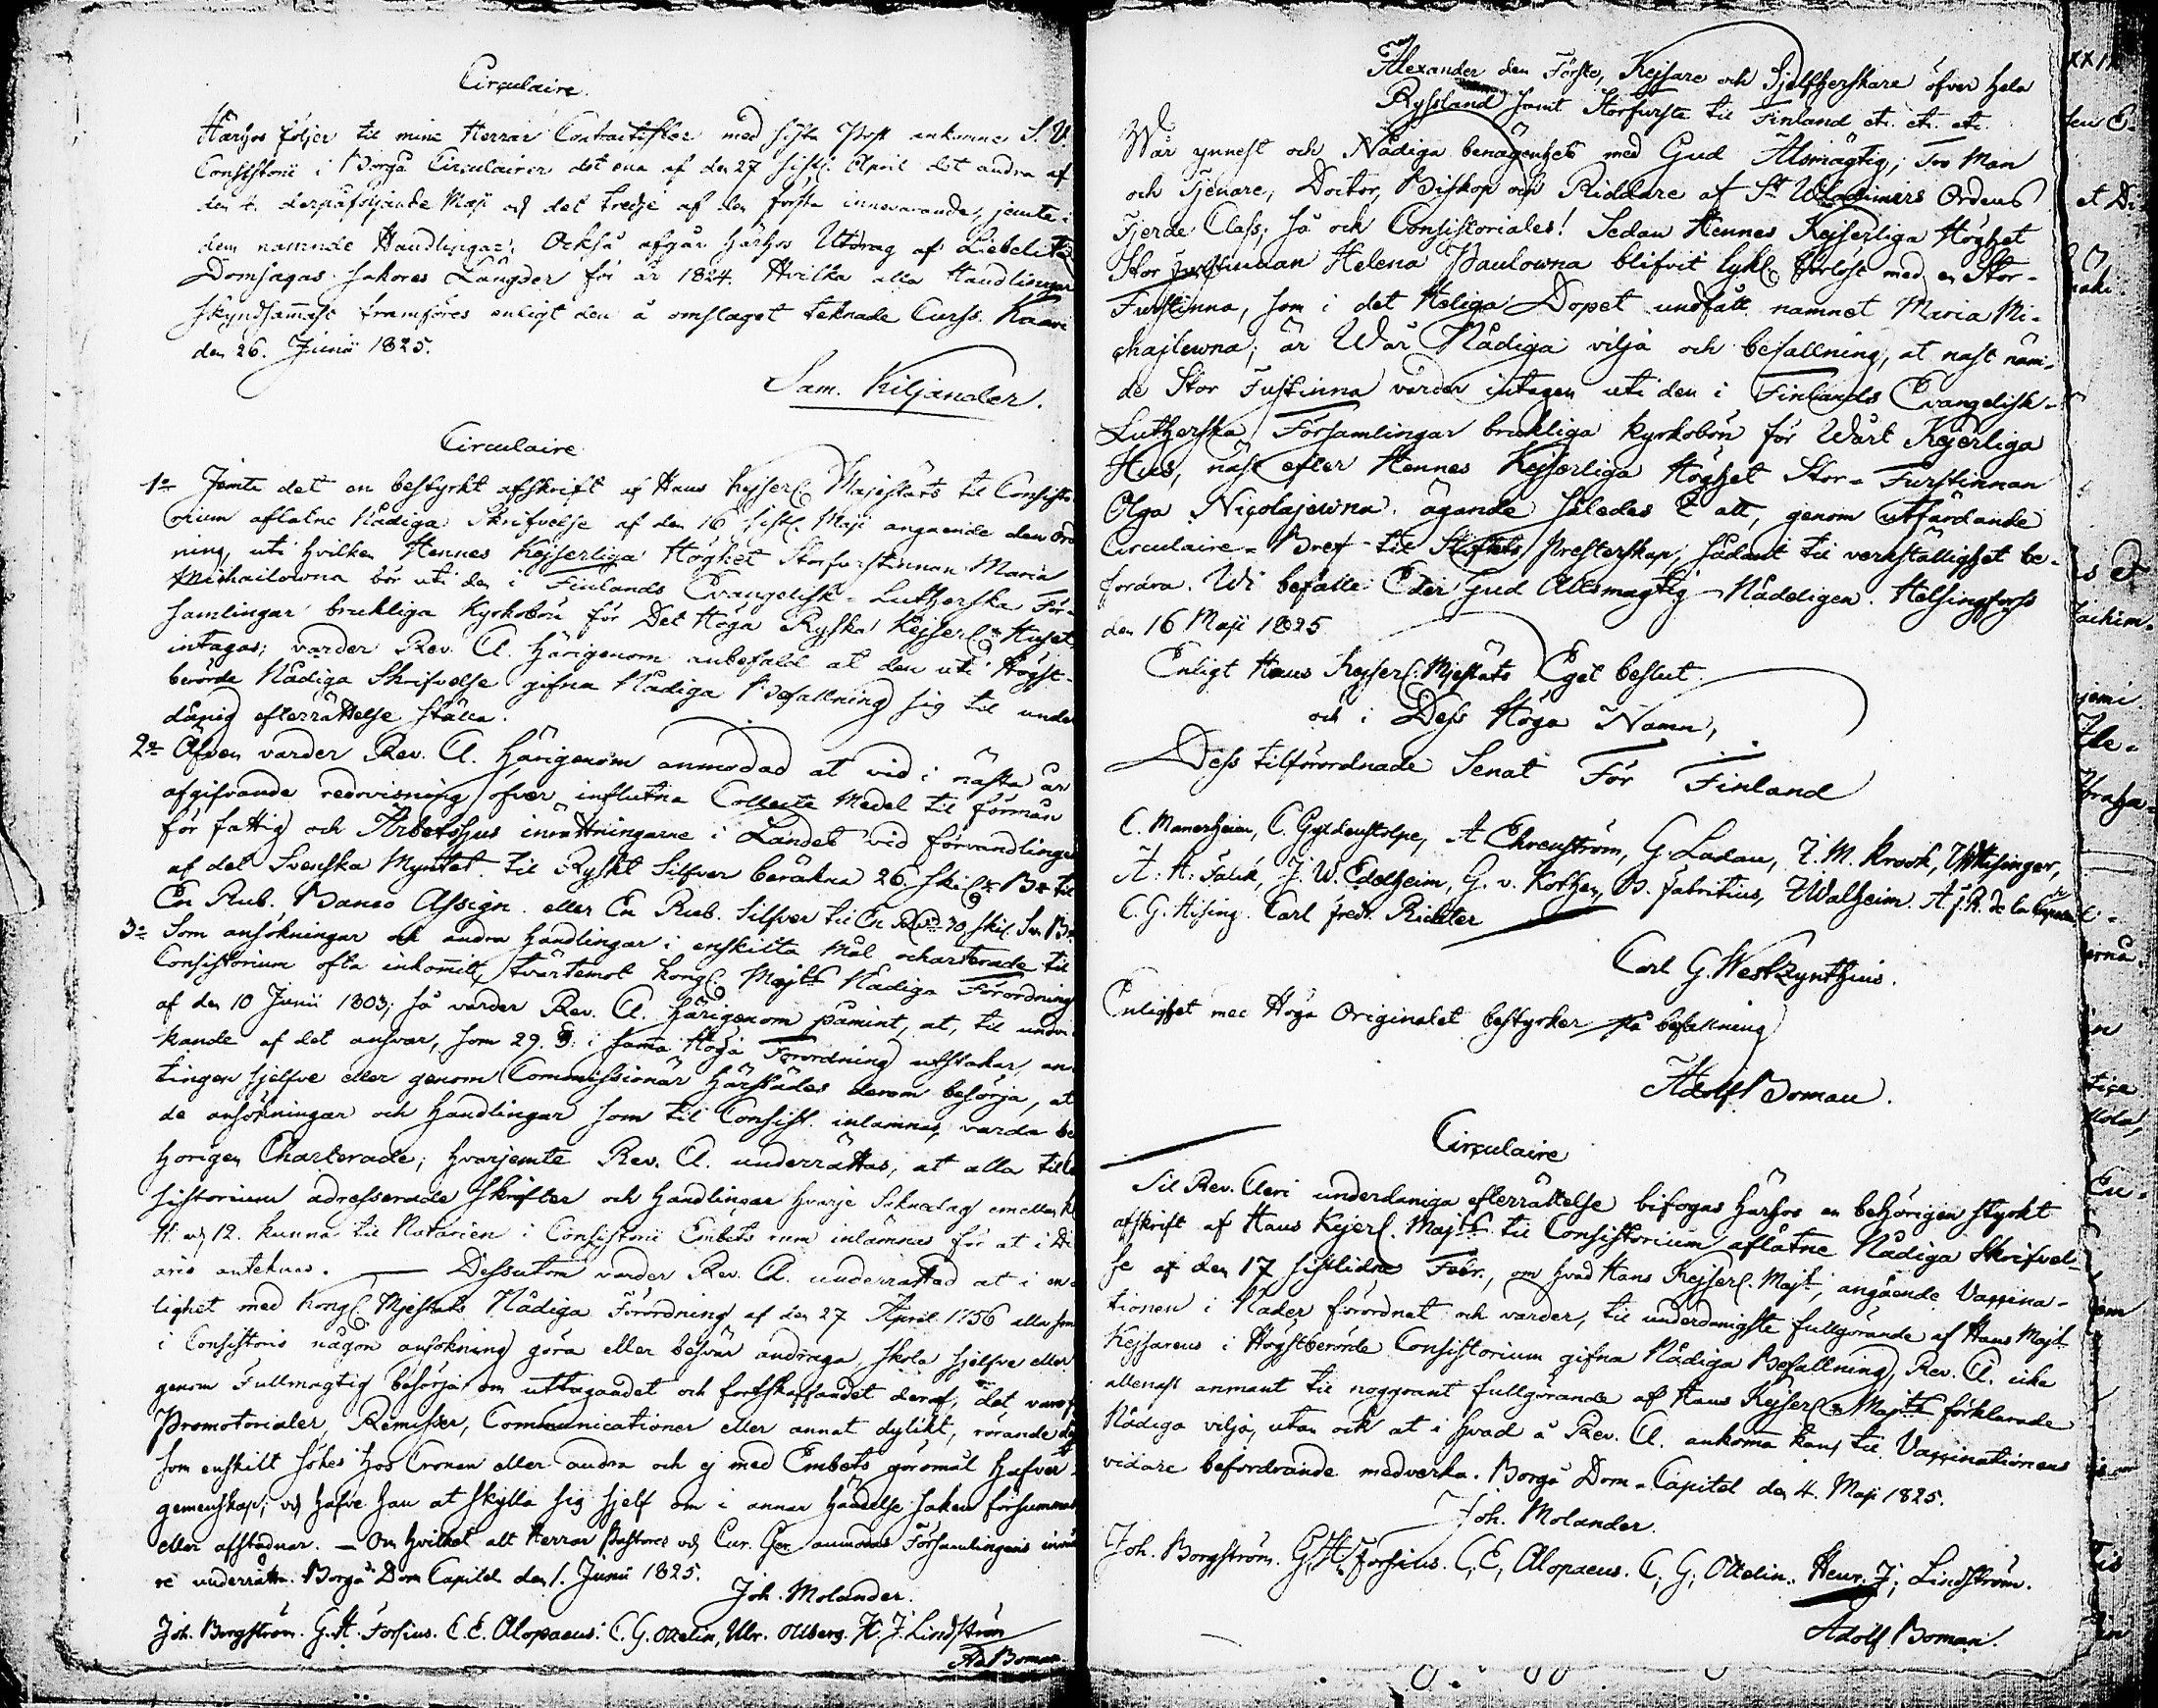 Circulaire
Härhos följer til mine Herrar Contractister med sista Post ankomne S. V.
Consistorii i Borgå Circulairer det ena af den 27 sistl. April det andra af
den 4. derpåföljande Maji och det tredje af den första innevarande, jemte i
dem namnde Handlingar. Också afgår härhos Utdrag af Libelits
Domsagas sakores Längder för år 1824. Hvilka alla Handlingar
skyndsammast framföres enligt den å omslaget teknade Curss. Kaavi
den 26. Junii 1825.
Sam. Kiljander.
Circulaire
1o Jemte det en bestyrkt afskrift af Hans Kejserl. Majestäts til Consist-
orium aflåtne Nådiga Skrifvelse af den 16 sistl. Maji angående den ord
ning, uti hvilken Hennes Kejserliga Höghet Storfurstinnan Maria
Michailowna bör uti den i Finlands Evangelisk-Lutherska För-
samlingar brukliga Kyrkobön för Det Höga Ryska Kejserl. Huset,
intagas; varder Rev. Cl. härigenom anbefald at den uti Högst-
berörde Nådiga Skrifvelse gifna Nådiga Befallning sig til under
dånig efterrättelse ställa.
2o Äfven varder Rev. Cl. härigenom anmodad at vid i nästa år
afgifvande redovisning öfver influtna Collecte Medel til förmån
för fattig och Arbetshus inrättningarne i Landet vid förvandlingen
af det Svenska Myntet til Ryskt Silfver beräkna 26 skil. Bo til
En Rub. Banco Assign. eller En Rub. Silfver til En Rdr 30 skil. Sv. Bo
3o Som ansökningar och andra handlingar i enskilta mål ocharterade til
Consistorium ofta inkommit, tvärtemot Kongl. Majts Nådiga Förordning
af den 10 Junii 1803; så varder Rev. Cl. härigenom påmint, at, til undvi-
kande af det ansvar, som 29. §. i samma Höga Förordning utstakar, an-
tingen sjelfve eller genom Commissionär härstädes derom besörja, at
de ansökningar och handlingar som til Consist. inlämnas, varda be
hörigen Charterade; hvarjemte Rev. Cl. underrättas, at alla til Con
sistorium adresserade Skrifter och Handlingar hvarje Söknedag emellan kl.
11 och 12. kunna til Notarien i Consistorii Embets rum inlämnas för at i Di
ario anteknas. — Dessutom varder Rev. Cl. underrättad at i en-
lighet med Kongl. Mjestäts Nådiga Förordning af den 27 April 1756 alla som
i Consistorio någon ansökning göra eller besvär andraga, skola sjelfve eller
genom Fullmägtig besörja om uttagandet och fortskaffandet deraf, det vare
Promotorialer, Remisser, Communicationer eller annat dylikt, rörande det
som enskilt sökes hos Cronan eller andra och ej med Embets göromål hafver
gemenskap; och hafve han at skylla sig sjelf om i annan händelse saken försummas
eller afstadnar. — Om hvilket alt Herrar Pastores och Cur. Ger. anmodas Församlingens invåna
re underrätta. Borgå Dom Capitel den 1. Junii 1825.
Joh. Molander.
Joh. Borgström. G. H. Forsius. C. E. Alopaeus. C. G. Ottelin, Ulr. Ottberg. H. J. Lindström
Ad. Boman
Alexander den Förste, Kejsare och Sjelfherskare öfver hela
Ryssland samt Storfurste til Finland etc. etc. etc.
Wår ynnest och Nådiga benägenhet med Gud Alsmägtig, Tro Man
och Tjenare, Doctor, Biskop och Riddare af St Wladimirs Ordens
Fjerde Class, så ock Consistoriales! Sedan Hennes Kejserliga Höghet
Stor Furstinnan Helena Paulowna blifvit lykl. förlöst med en Stor-
Furstinna, som i det Heliga Dopet undfått namnet Maria Mi-
chajlewna; är Wår Nådiga vilja och befallning, at näst näm-
de Stor Fustinna varder intagen uti den i Finlands Evangelisk-
Lutherska Församlingar brukliga kyrkobön för Wårt Kejerliga
Hus, näst efter Hennes Kejserliga Höghet Stor-Furstinnan
Olga Nicolajewna. ägande således I att, genom utfärdande
Circulaire-Bref til Stiftets Presterskap, sådant til verkställighet be-
fordra. Wi befalle Eder Gud Allsmägtig Nådeligen. Helsingfors
den 16 Maji 1825
Enligt Hans Kejserl. Mjestäts Eget beslut
och i Dess Höga Namn,
Dess tilförordnade Senat För Finland
C. Manerheim, C. Gyldenstolpe, A Ehrenström, G. Ladau, Z. M. Krook, W Hisinger,
A: H: Falck, J. W. Edelheim, G. v. Kothen, B. Fabritius, Walheim. A. f. R. de la Chapelle
C. G. Hising. Carl Fredr. Richter
Carl G. Westzynthius.
Enlighet med Höga Originalet bestyrker på befallning
Adolf Boman.
Circulaire
Til Rev. Cleri underdåniga efterrättelse bifogas härhos en behörigen styrkt
afskrift af Hans Kejerl. Majts til Consistorium aflåtne Nådiga Skrifvel-
se af den 17 sistlidne Febr., om hvad Hans Kejserl. Majt, angående Vaccina-
tionen i Nåder förordnat och varder, til underdånigste fullgörande af Hans Majt
Kejsarens i Högstberörde Consistorium gifna Nådiga Befallning, Rev. Cl. icke
allenast anmant til noggrant fullgörande af Hans Kejserl. Majts förklarade
Nådiga vilja, utan ock at i hvad å Rev. Cl. ankomma kan, til Vaccinationens
vidare befordrande medverka. Borgå Dom-Capitel den 4. Maji 1825.
Joh. Molander.
Joh. Borgström. G. H. Forsius. C. E. Alopaeus. C. G. Ottelin. Henr. J. Lindström.
Adolf Boman.